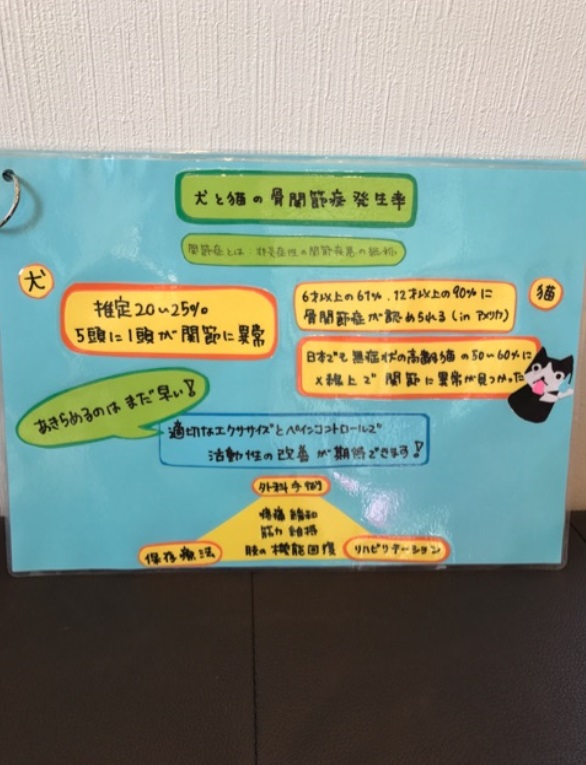 犬と猫の骨関節症発生率
関節症とは:非炎症性の関節疾患の総称
犬
推定20~25%
5頭に1頭が関節に異常
猫
6才以上の61%、12才以上の90%に
骨関節症が認められる(in アメリカ)
日本でも無症状の高齢猫の50~60%に
X線上で関節に異常が見つかった
あきらめるのはまだ早い!
適切なエクササイズとペインコントロールで
活動性の改善が期待できます!
外科手術
疼痛緩和
筋力維持
肢の機能回復
保存療法
リハビリテーション